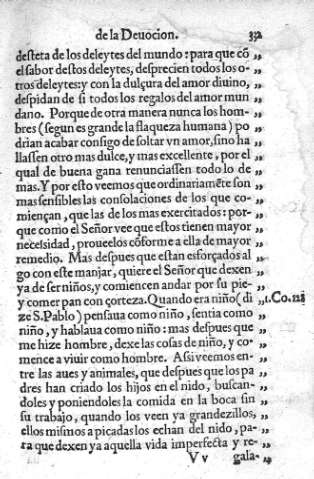 de la Deuocion. 332
desteta de los deleytes del mundo: para que cõ „
el sabor destos deleytes, desprecien todos los o- „
tros deleytes: y con la dulçura del amor diuino, „
despidan de si todos los regalos del amor mun „
dano. Porque de otra manera nunca los hom- „
bres (segun es grande la flaqueza humana) po „
drian acabar consigo de soltar vn amor, sino ha „
llassen otro mas dulce, y mas excellente, por el „
qual de buena gana renunciassen todo lo de „
mas. Y por esto veemos que ordinariamẽte son „
mas sensibles las consolaciones de los que co- „
miençan, que las de los mas exercitados: por- „
que como el Señor vee que estos tienen mayor „
necessidad, prouee los cõforme a ella de mayor „
remedio. Mas despues que estan esforçados al „
go con este manjar, quiere el Señor que dexen „
ya de ser niños, y comiencen andar por su pie, „
y comer pan con corteza. Quando era niño (di „
ze S. Pablo) pensaua como niño, sentia como „
niño, y hablaua como niño: mas despues que „
me hize hombre, dexe las cosas de niño, y co- „
mence a viuir como hombre. Assi veemos en- „
tre las aues y animales, que despues que los pa „
dres han criado los hijos en el nido, buscan- „
doles y poniendoles la comida en la boca sin „
su trabajo, quando los veen ya grandezillos, „
ellos mismos a picadas los echan del nido, pa- „
ra que dexen ya aquella vida imperfecta y re- „
V v gala- „